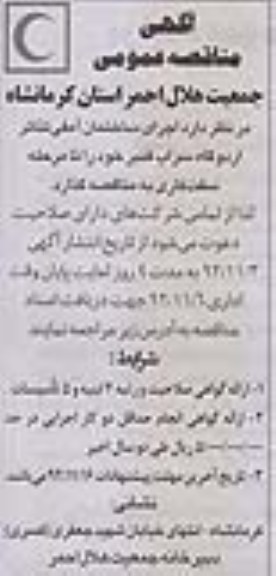 آگهی
مناقصه عمومی
جمعیت هلال احمر استان کرمانشاه
در نظر دارد اجرای ساختمان آمفی تئاتر
اردوگاه سراب قنبر خود را تا مرحله
سفتکاری به مناقصه گذارد.
لذا از تمامی شرکت‌های دارای صلاحیت
دعوت می‌شود از تاریخ انتشار آگهی
۹۲/۱۱/۳ به مدت ۴ روز لغایت پایان وقت
اداری ۹۲/۱۱/۶ جهت دریافت اسناد
مناقصه به آدرس زیر مراجعه نمایند
شرایط:
۱- ارائه گواهی صلاحیت و رتبه ابنیه و ۵ تأسیسات
۲- ارائه گواهی انجام حداقل دو کار اجرایی در حد
ریال طی دو سال اخیر
۳- تاریخ آخرین مهلت پیشنهادات ۹۲/۱۱/۱۶ می‌باشد.
نشانی:
کرمانشاه - انتهای خیابان شهید جعفری (کسری)
دبیرخانه جمعیت هلال احمر